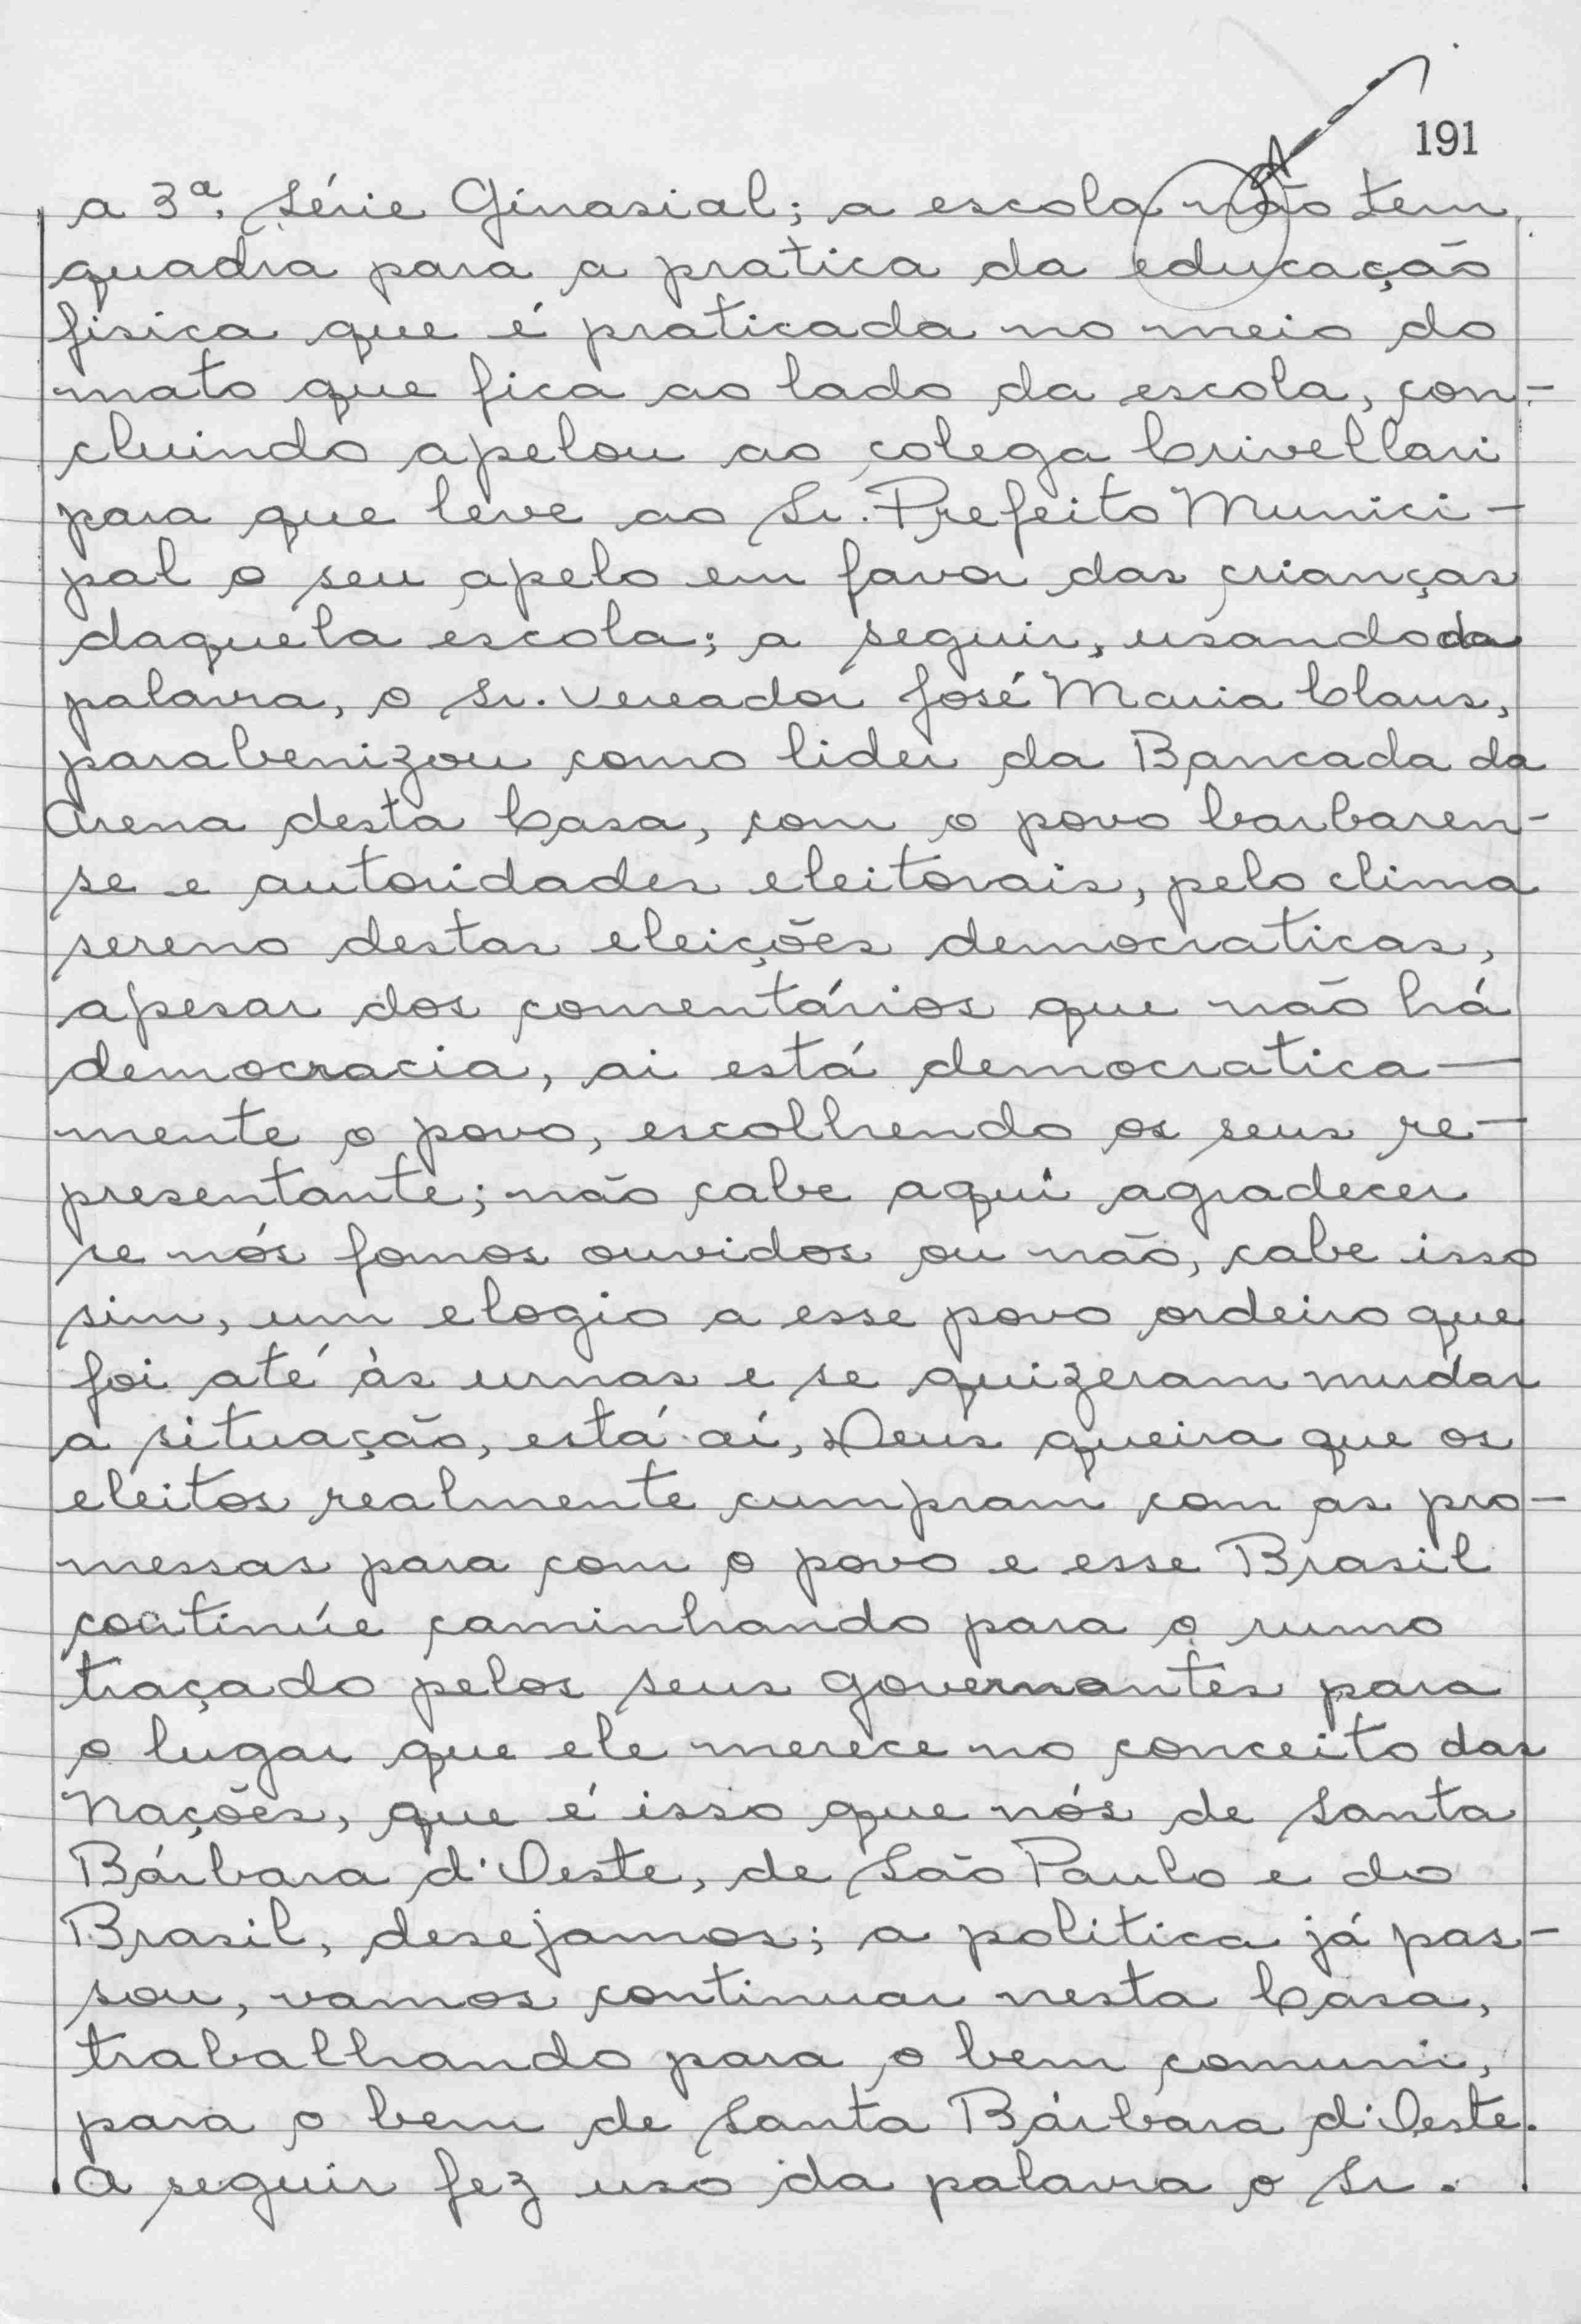 191
a 3ª. Série Ginasial; a escola não tem
quadra para a pratica da educação
fisica que é praticada no meio do
mato que fica ao lado da escola, con-
cluindo apelou ao colega Crivellari
para que leve ao Sr. Prefeito Munici-
pal o seu apelo em favor das crianças
daquela escola; a seguir, usando da
palavra, o Sr. vereador José Maria Claus,
parabenizou como lider da Bancada da
Arena desta Casa, com o povo barbaren-
se e autoridades eleitorais, pelo clima
sereno destas eleições democraticas,
apesar dos comentários que não há
democracia, ai está democratica-
mente o povo, escolhendo os seus re-
presentante; não cabe aqui agradecer
se nós fomos ouvidos ou não, cabe isso
sim, um elogio a esse povo ordeiro que
foi até às urnas e se quizeram mudar
a situação, está aí, Deus queira que os
eleitos realmente cumpram com as pro-
messas para com o povo e esse Brasil
continúe caminhando para o rumo
traçado pelos seus governantes para
o lugar que ele merece no conceito das
Nações, que é isso que nós de Santa
Bárbara d'Oeste, de São Paulo e do
Brasil, desejamos; a politica já pas-
sou, vamos continuar nesta Casa,
trabalhando para o bem comum,
para o bem de Santa Bárbara d'Oeste.
A seguir fez uso da palavra o Sr.